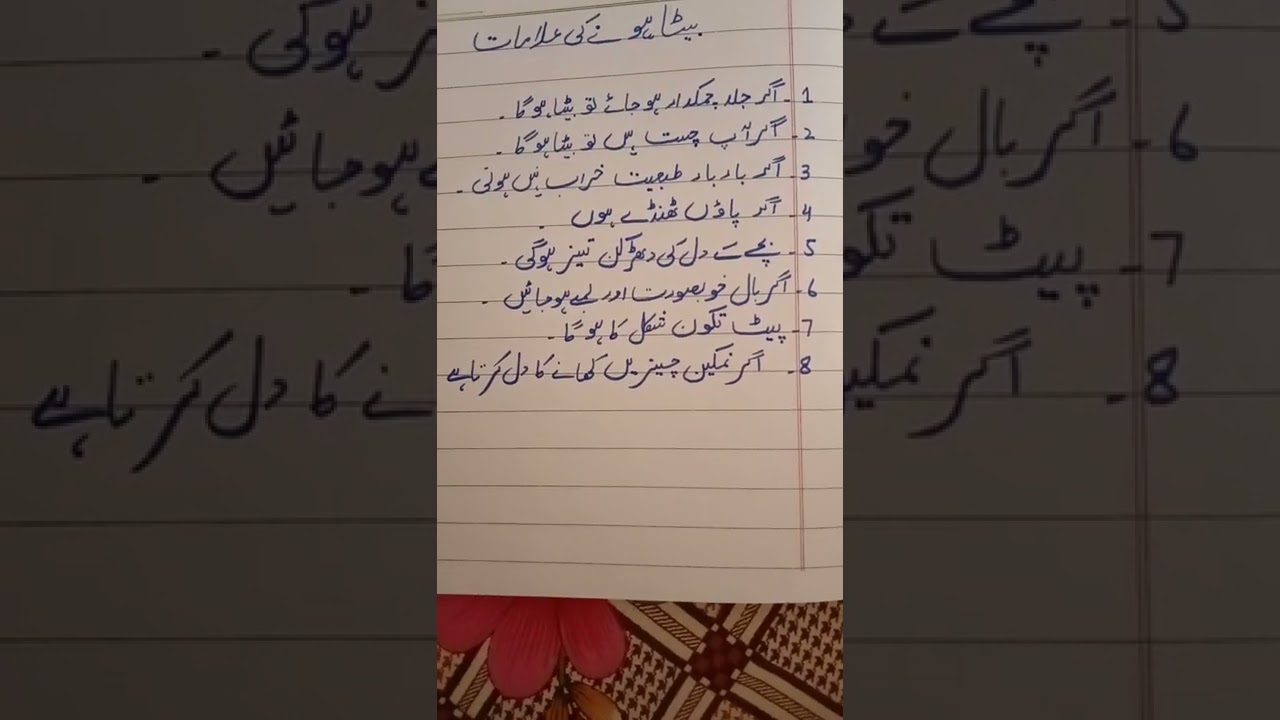 بیٹا ہونے کی علامات
1۔ اگر جلد چمکدار ہو جائے تو بیٹا ہوگا ۔
2۔ اگر آپ چست ہیں تو بیٹا ہوگا ۔
3۔ اگر بار بار طبعیت خراب نہیں ہوتی ۔
4۔ اگر پاؤں ٹھنڈے ہوں ۔
5۔ بچے کے دل کی دھڑکن تیز ہوگی ۔
6۔ اگر بال خوبصورت اور لمبے ہو جائیں ۔
7۔ پیٹ تکون شکل کا ہو گا ۔
8۔ اگر نمکین چیزیں کھانے کا دل کرتا ہے